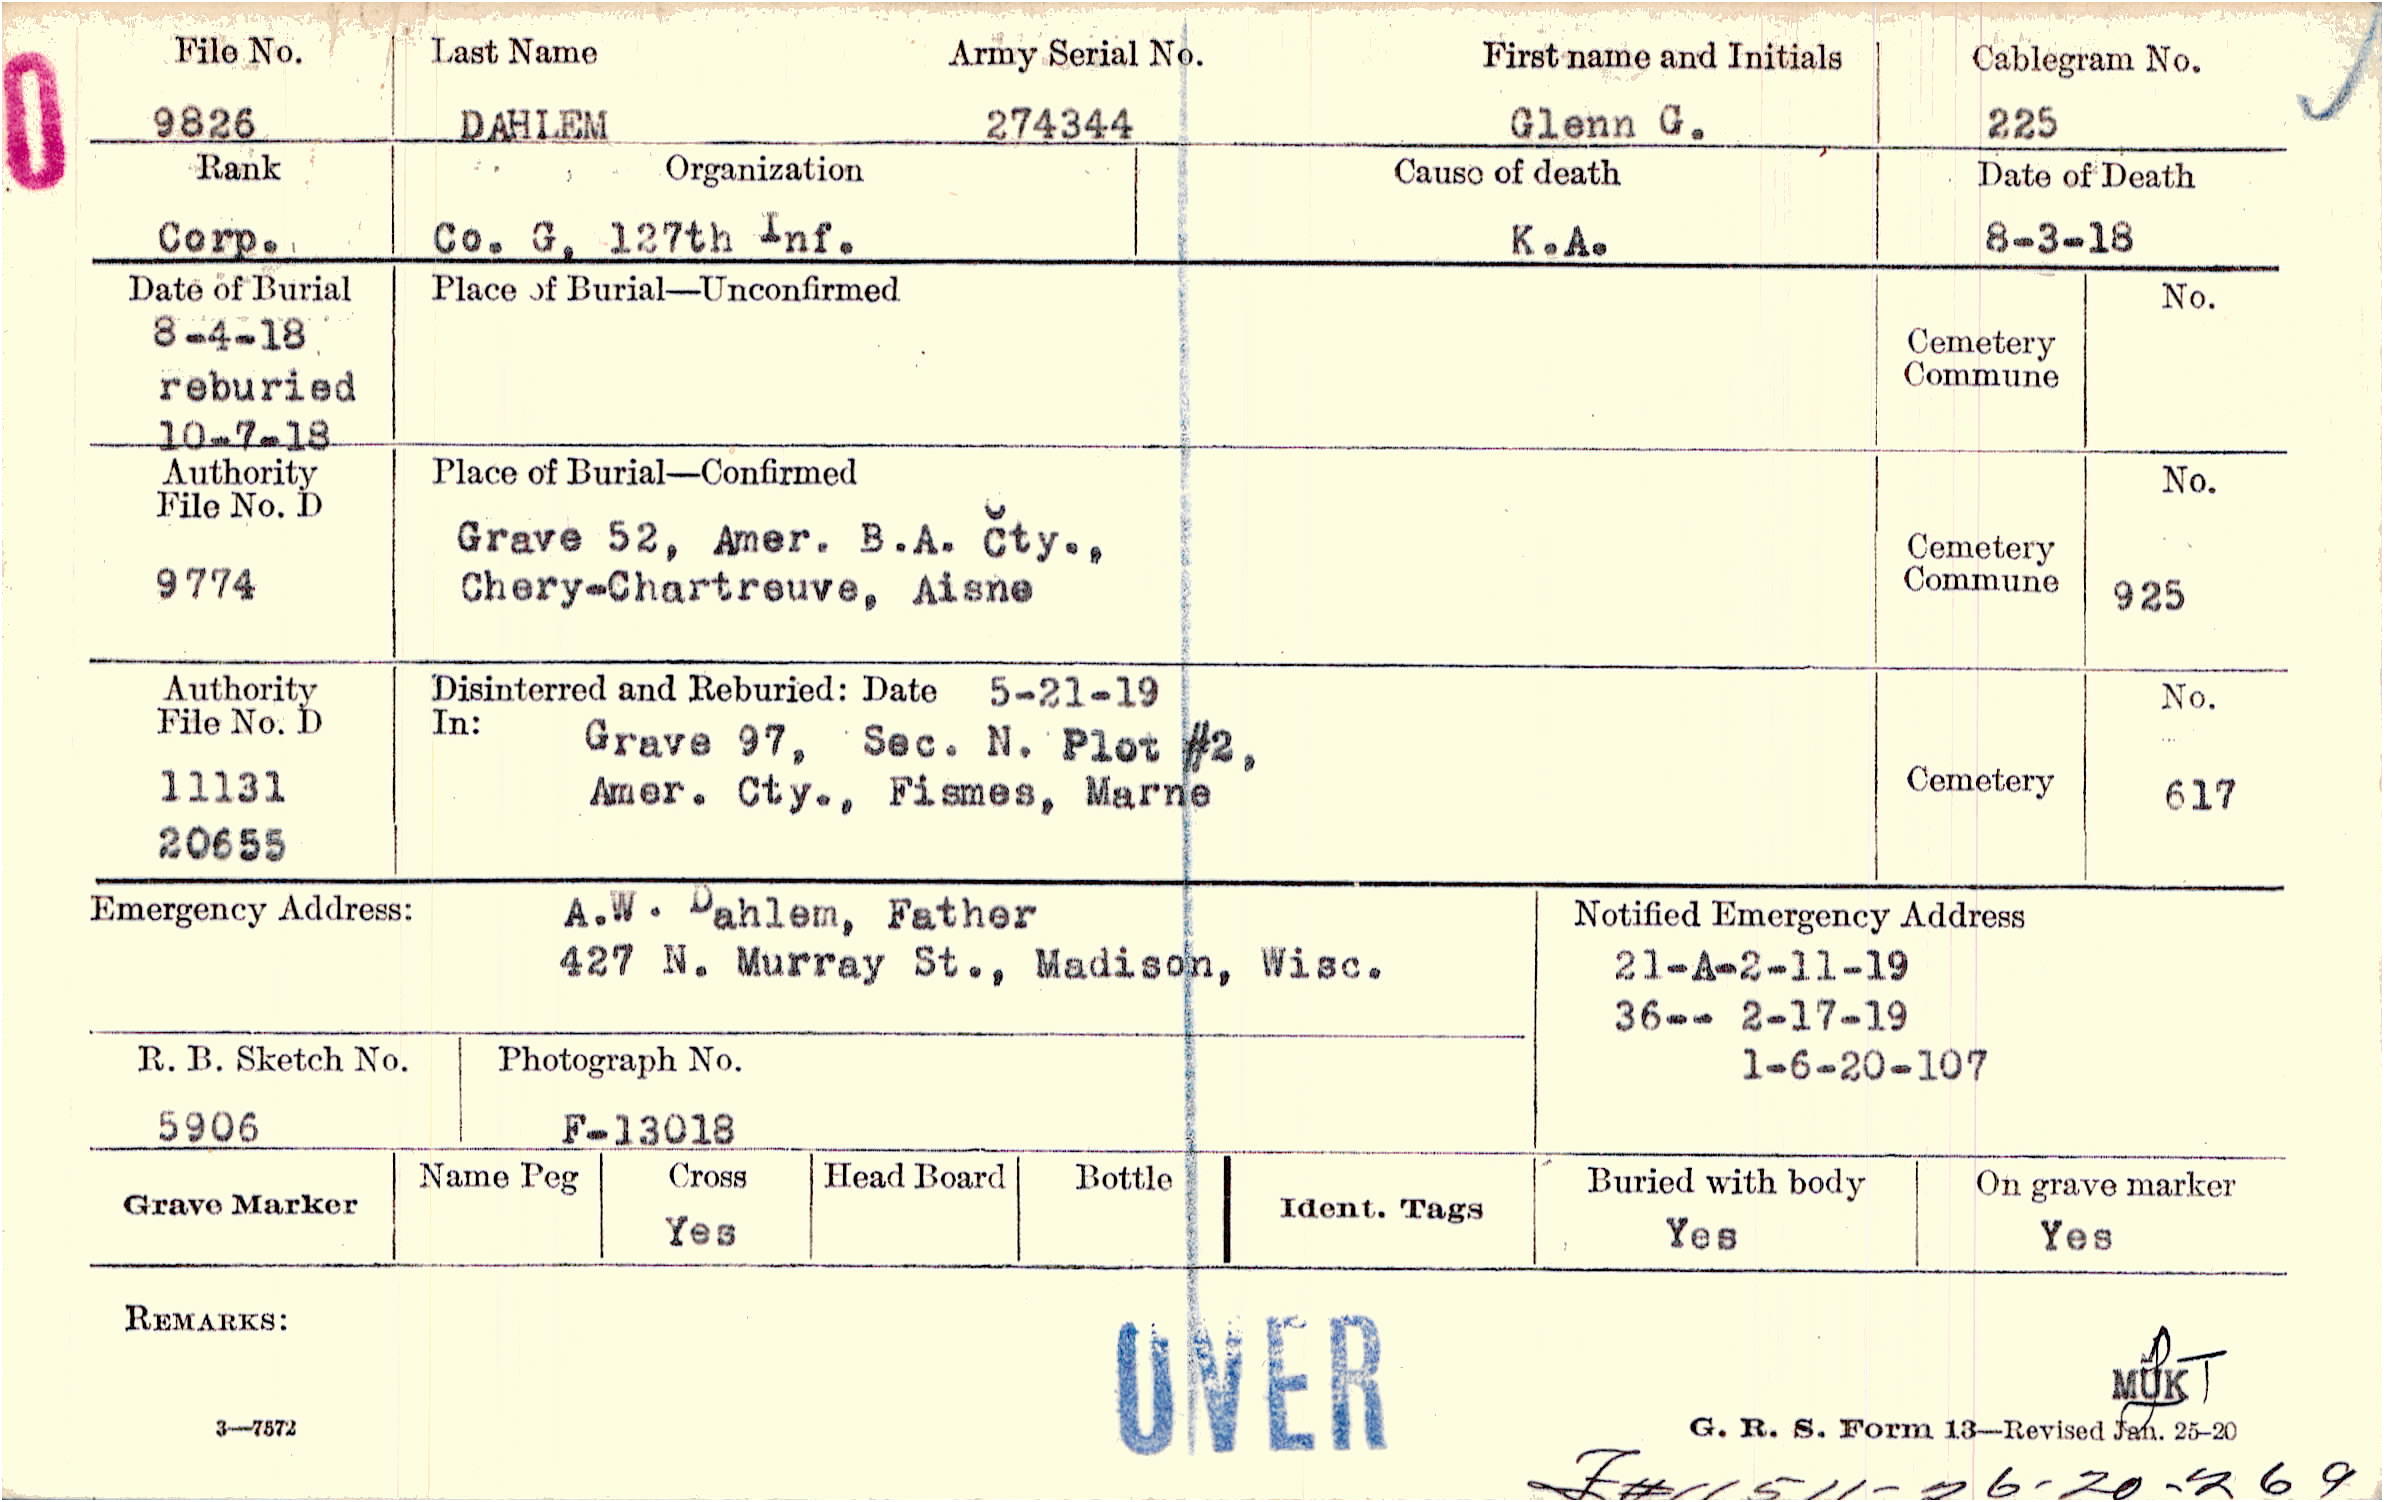 File No. Last Name Army Serial No. First name and Initials Cablegram No.
9826 DAHLEM 274344 Glenn G. 225
Rank Organization Cause of death Date of Death
Corp. Co. G, 127th Inf. K.A. 8-3-18
Date of Burial Place of Burial—Unconfirmed No.
8-4-18
reburied
10-7-18
Cemetery
Commune
Authority Place of Burial—Confirmed No.
File No. D
9774
Grave 52, Amer. B.A. Cty.,
Chery-Chartreuve, Aisne
Cemetery
Commune 925
Authority Disinterred and Reburied: Date 5-21-19 No.
File No. D In: Grave 97, Sec. N. Plot #2,
11131 Amer. Cty., Fismes, Marne Cemetery 617
20655
Emergency Address: A.W. Dahlem, Father
427 N. Murray St., Madison, Wisc.
Notified Emergency Address
21-A-2-11-19
36-- 2-17-19
1-6-20-107
R. B. Sketch No. Photograph No.
5906 F-13018
Grave Marker Name Peg Cross Head Board Bottle Ident. Tags Buried with body On grave marker
Yes Yes Yes
REMARKS:
MUK
3—7572 G. R. S. Form 13—Revised Jan. 25-20